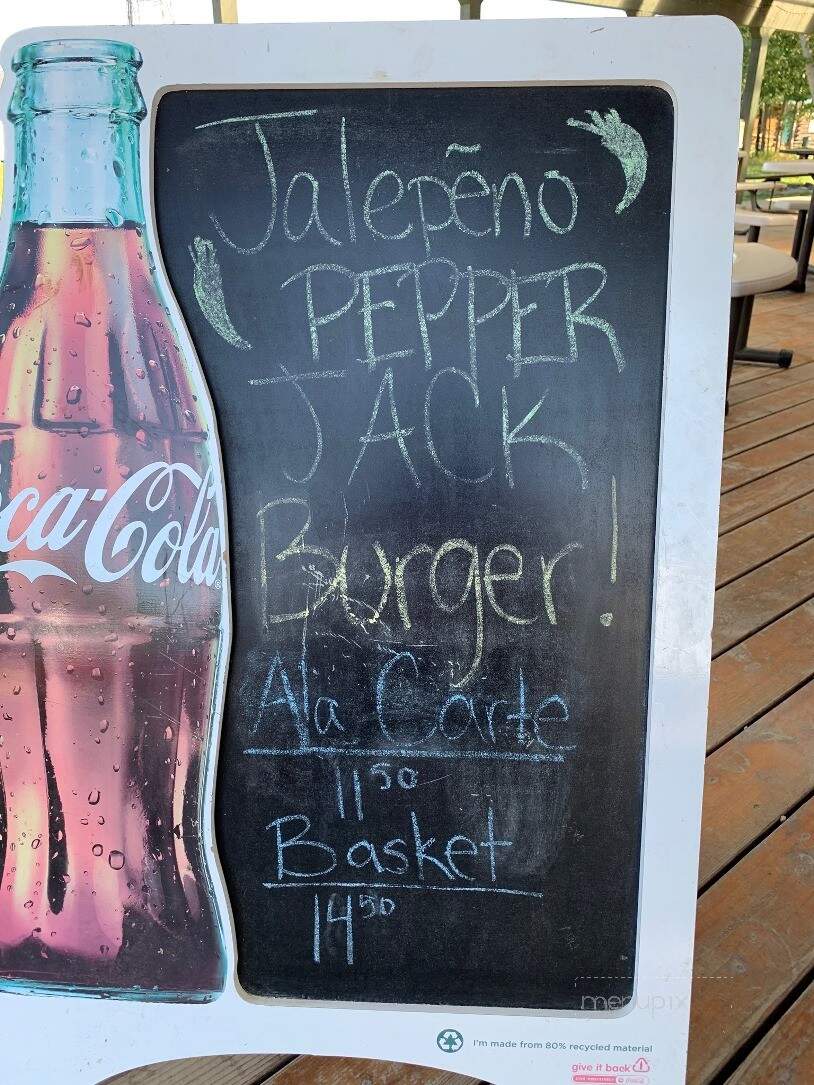 Jalepẽno
PEPPER
JACK
Burger!
Ala Carte
11 50
Basket
14 50
ca-Cola
menupix
I'm made from 80% recycled material
give it back